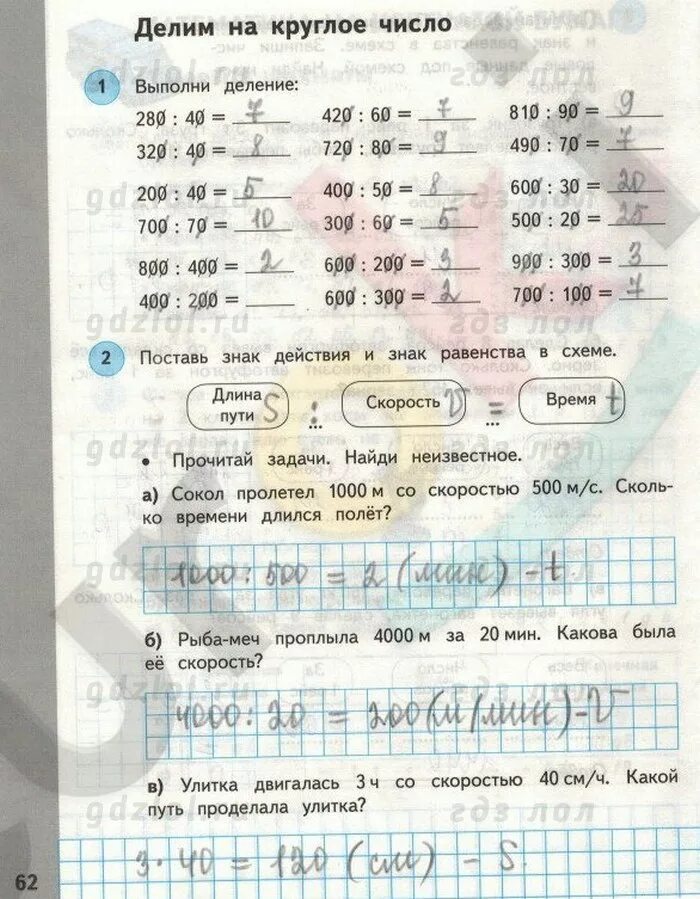 Делим на круглое число
1 Выполни деление:
280 : 40 = 7 420 : 60 = 7 810 : 90 = 9
320 : 40 = 8 720 : 80 = 9 490 : 70 = 7
200 : 40 = 5 400 : 50 = 8 600 : 30 = 20
700 : 70 = 10 300 : 60 = 5 500 : 20 = 25
800 : 400 = 2 600 : 200 = 3 900 : 300 = 3
400 : 200 = 600 : 300 = 2 700 : 100 = 7
2 Поставь знак действия и знак равенства в схеме.
Длина пути S : Скорость V = Время t
... ...
• Прочитай задачи. Найди неизвестное.
а) Сокол пролетел 1000 м со скоростью 500 м/с. Сколь-
ко времени длился полёт?
1000 : 500 = 2 (мин) - t
б) Рыба-меч проплыла 4000 м за 20 мин. Какова была
её скорость?
4000 : 20 = 200 (м/мин) - V
в) Улитка двигалась 3 ч со скоростью 40 см/ч. Какой
путь проделала улитка?
3 · 40 = 120 (см) - S
62
gdzlol.ru гдз лол